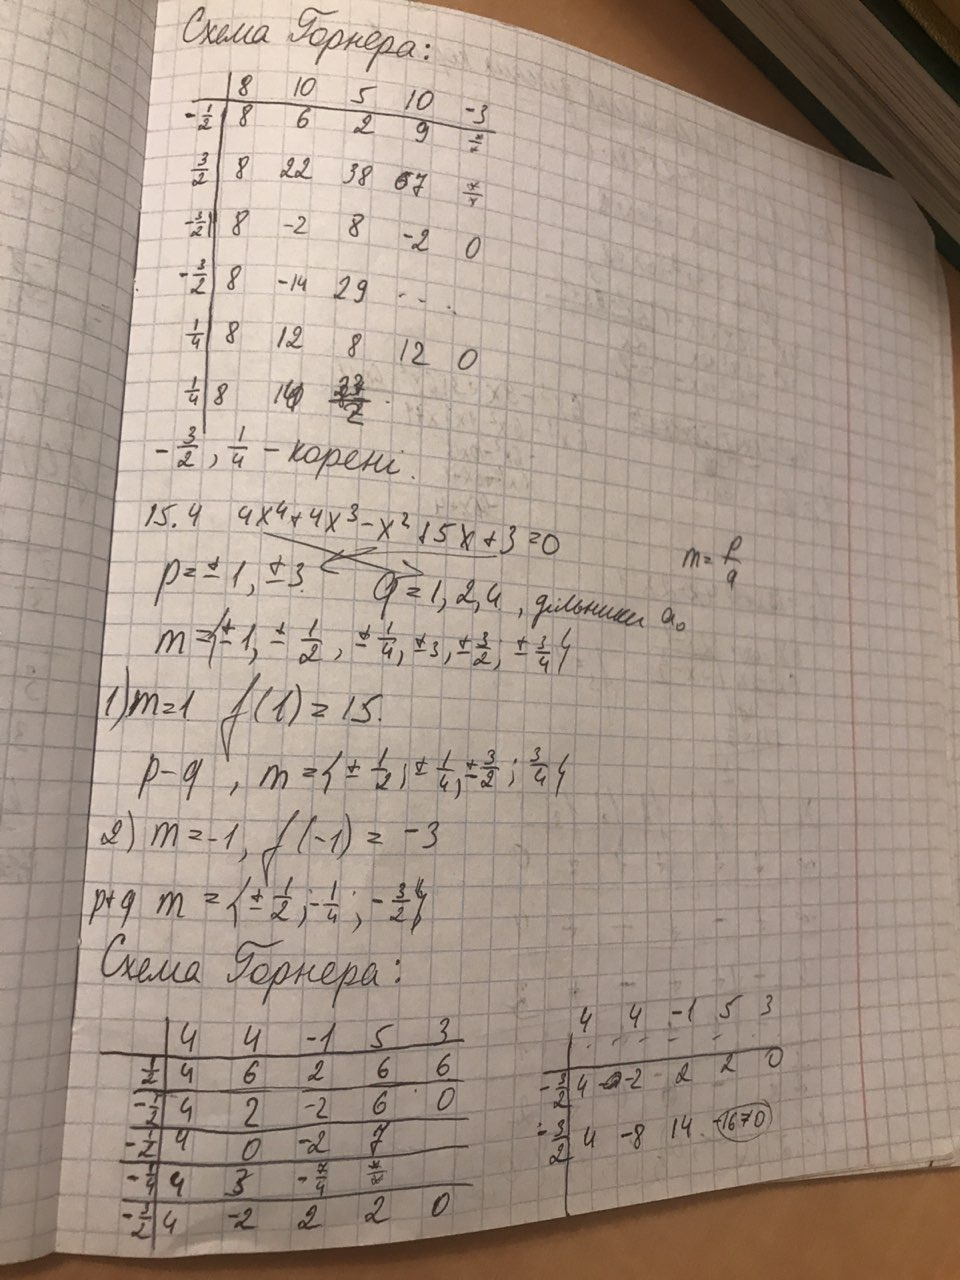 Схема Горнера:
8 10 5 10 -3
-1/2 8 6 2 9 */*
3/2 8 22 38 67 */*
-3/2 8 -2 8 -2 0
-3/2 8 -14 29 ...
1/4 8 12 8 12 0
1/4 8 14
-3/2, 1/4 - корені.
15.4 4x⁴+4x³-x²+5x+3=0
m = p/q
p=±1, ±3. q=1,2,4, дільники a₀
m={±1, ±1/2, ±1/4, ±3, ±3/2; ±3/4}
1) m=1 f(1)=15.
p-q, m={±1/2; ±1/4, ±3/2; 3/4}
2) m=-1, f(-1)= -3
p+q m={±1/2; -1/4; -3/2}
Схема Горнера:
4 4 -1 5 3
1/2 4 6 2 6 6
-1/2 4 2 -2 6 0
-1/2 4 0 -2 7
-1/4 4 3 -*/4 */*
-3/2 4 -2 2 2 0
4 4 -1 5 3
-3/2 4 -2 2 2 0
-3/2 4 -8 14 -16≠0